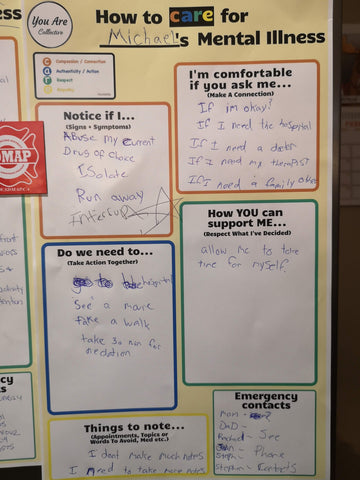 ess
You Are
Collective
How to care for
Michael's Mental Illness
Compassion / Connection
Authenticity / Action
Respect
Empathy
Notice if I...
(Signs + Symptoms)
Abuse my current
Drug of choice
ISolate
Run away
I'm comfortable
if you ask me...
(Make A Connection)
If im okay?
If I need the hospital
If I need a doctor
If I need my therapist
If I need a family
MAP
Do we need to...
(Take Action Together)
hospital
See a movie
take a walk
take 30 min for
mediation
How YOU can
support ME...
(Respect What I've Decided)
allow me to take
time for myself.
Things to note...
(Appointments, Topics or
Words To Avoid, Med etc.)
I dont make much notes
I need to take more notes
Emergency
contacts
mom -
DaD -
Rachael - See
Steph - Phone
Stephen - Contacts